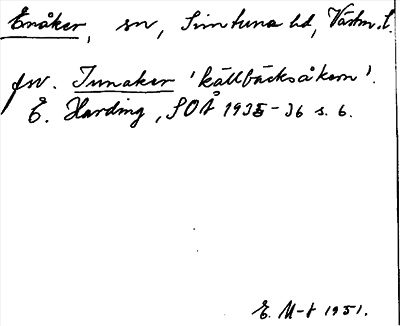 Enåker, sn, Simtuna hd, Västm. l.
fsv. Iunaker 'källbäcksåkern'.
E. Harding, SOÅ 1935-36 s. 6.
E. M-t 1951.